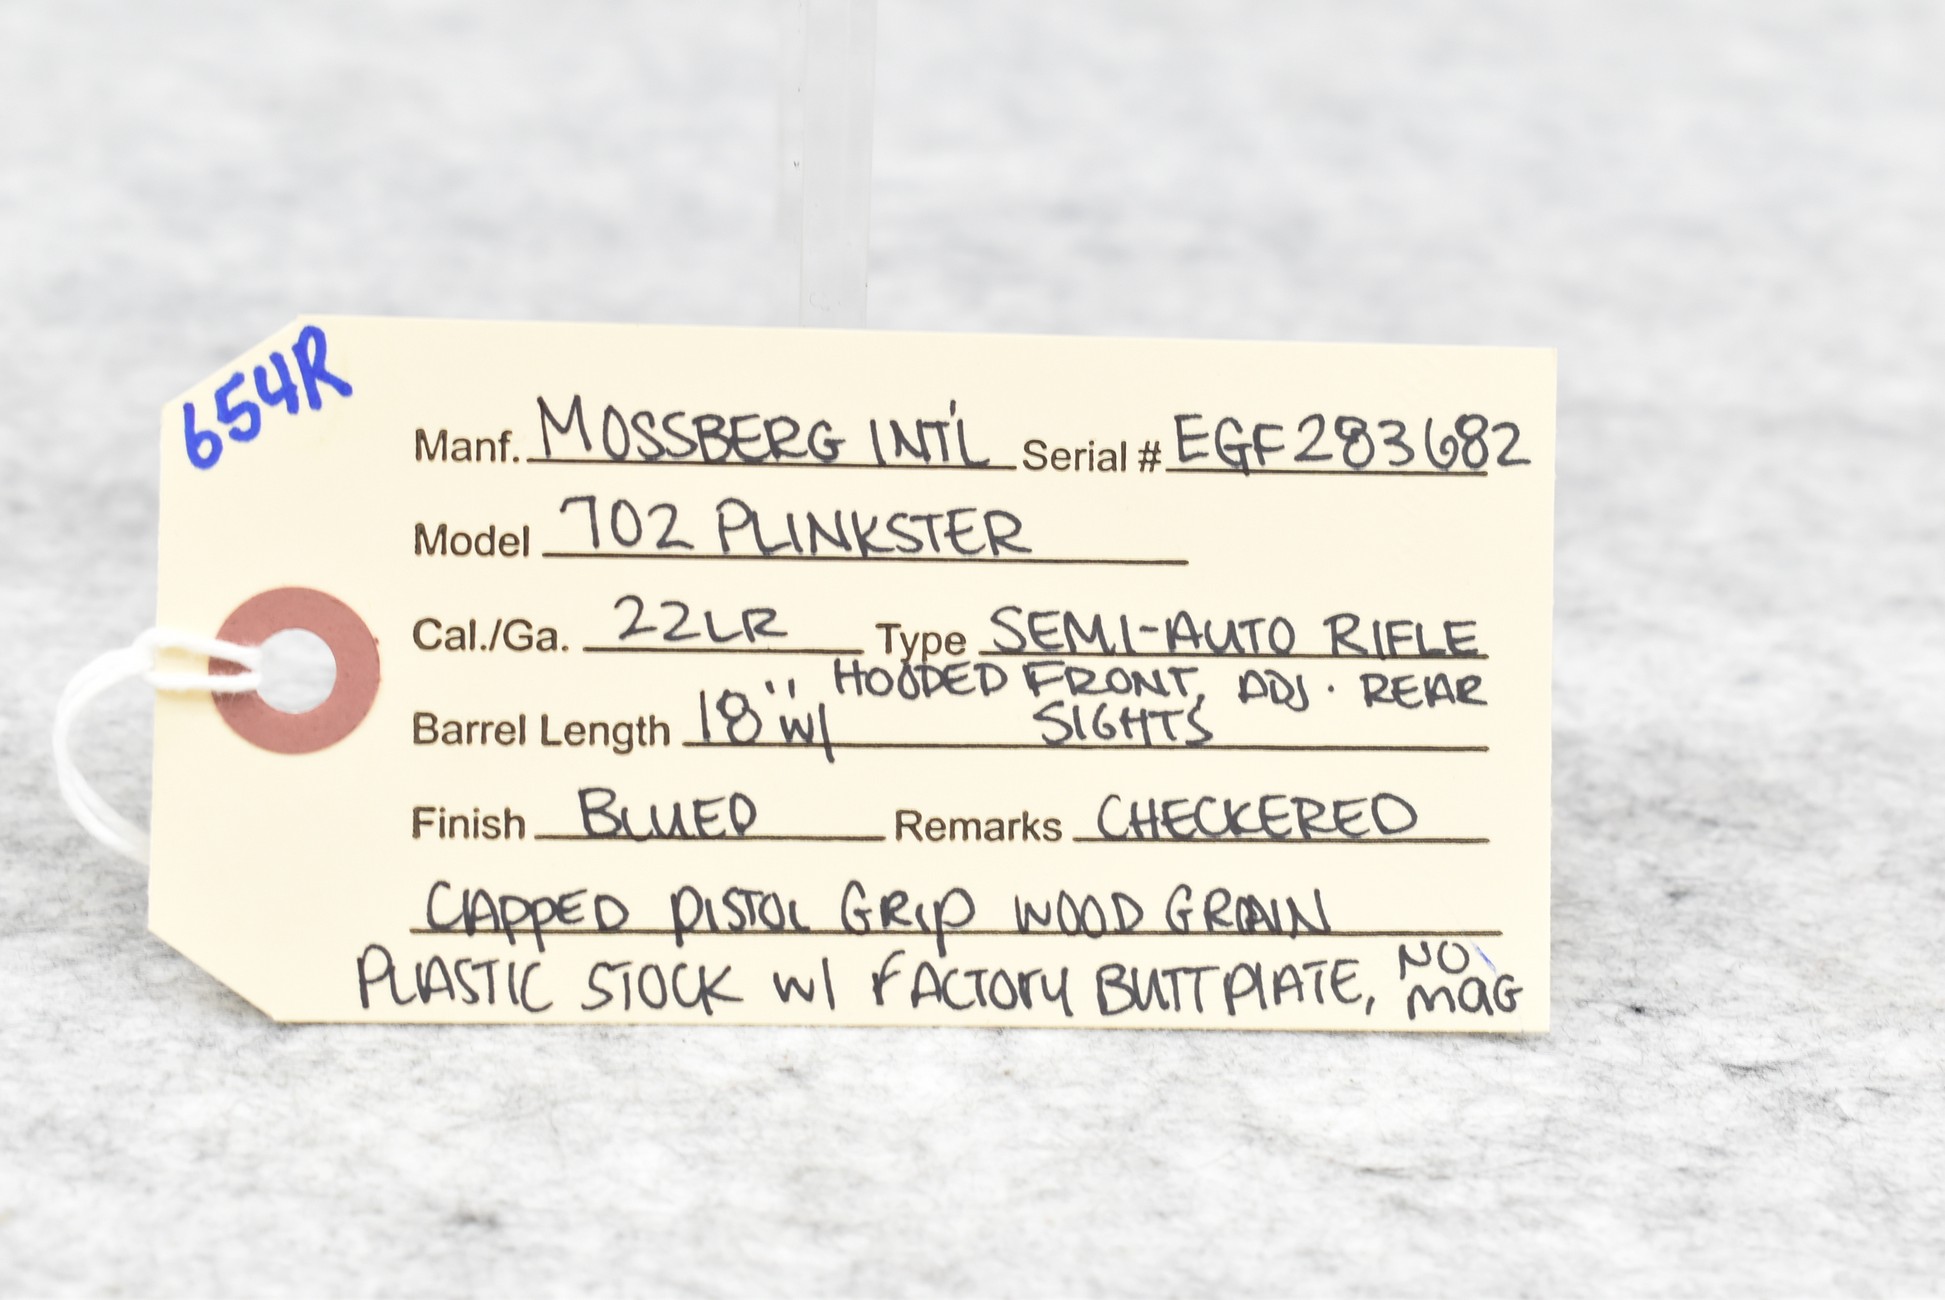 654R
Manf. MOSSBERG INT'L Serial # EGF283682
Model 702 PLINKSTER
Cal./Ga. 22LR Type SEMI-AUTO RIFLE
Barrel Length 18" w/ HOODED FRONT, ADJ. REAR
SIGHTS
Finish BLUED Remarks CHECKERED
CAPPED PISTOL GRIP WOOD GRAIN
PLASTIC STOCK w/ FACTORY BUTTPLATE, NO
MAG